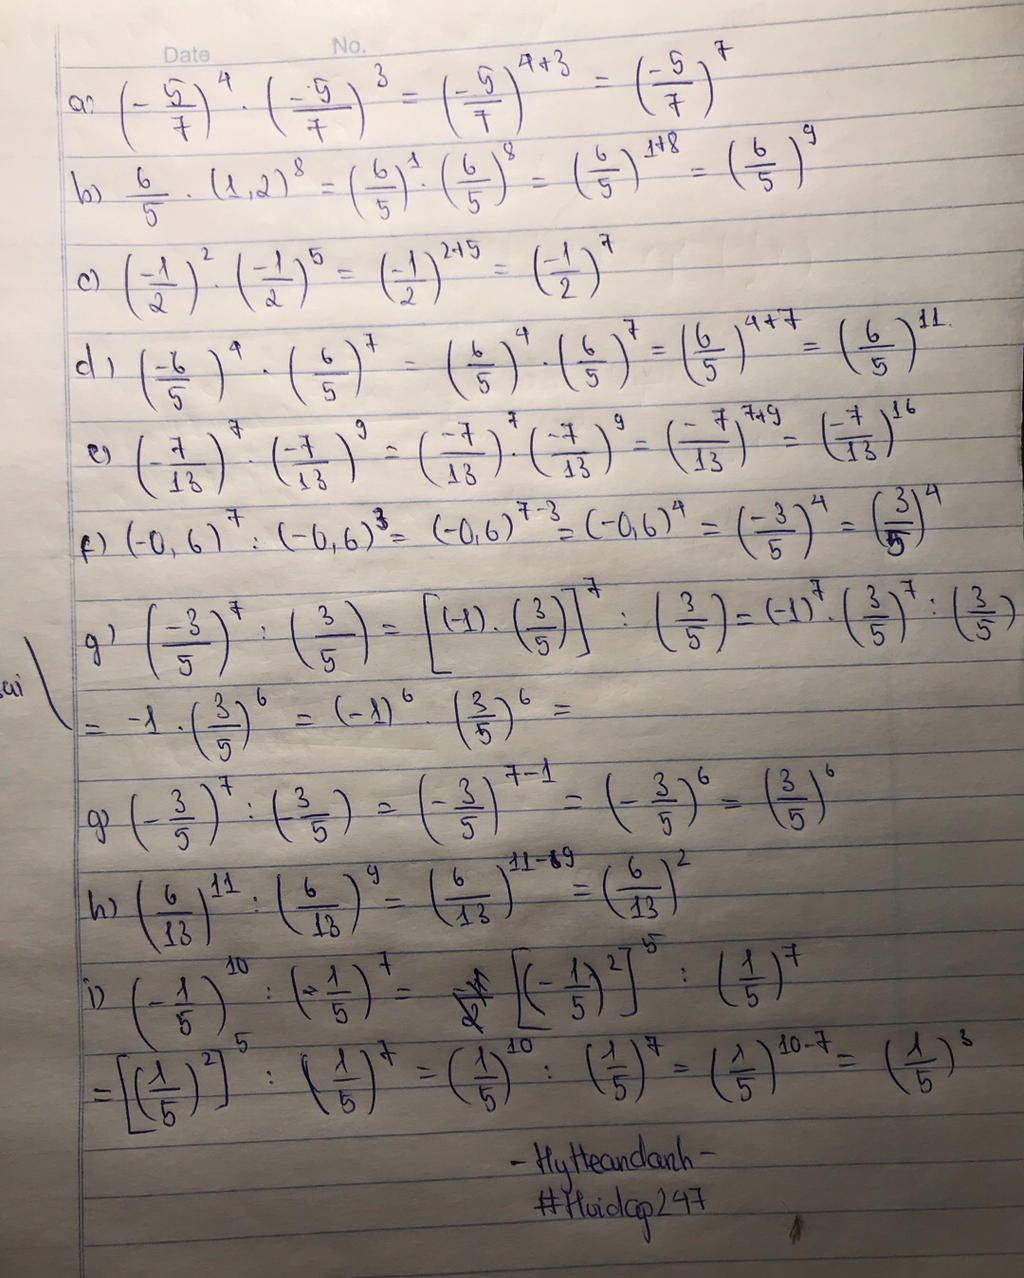 Date No.
a) (-5/7)^4 . (-5/7)^3 = (-5/7)^{4+3} = (-5/7)^7
b) 6/5 . (1,2)^8 = (6/5)^1 . (6/5)^8 = (6/5)^{1+8} = (6/5)^9
c) (-1/2)^2 . (-1/2)^5 = (-1/2)^{2+5} = (-1/2)^7
d) (-6/5)^4 . (6/5)^7 = (6/5)^4 . (6/5)^7 = (6/5)^{4+7} = (6/5)^{11}
e) (-7/13)^7 . (-7/13)^9 = (-7/13)^7 . (-7/13)^9 = (-7/13)^{7+9} = (-7/13)^{16}
f) (-0,6)^7 : (-0,6)^3 = (-0,6)^{7-3} = (-0,6)^4 = (-3/5)^4 = (3/5)^4
g) (-3/5)^7 : (3/5) = [(-1) . (3/5)]^7 : (3/5) = (-1)^7 . (3/5)^7 : (3/5)
= -1 . (3/5)^6 = (-1)^6 . (3/5)^6 =
g) (-3/5)^7 : (-3/5) = (-3/5)^{7-1} = (-3/5)^6 = (3/5)^6
h) (6/13)^{11} : (6/13)^9 = (6/13)^{11-9} = (6/13)^2
i) (-1/5)^{10} : (-1/5)^7 = [(-1/5)^2]^5 : (1/5)^7
= [(1/5)^2]^5 : (1/5)^7 = (1/5)^{10} : (1/5)^7 = (1/5)^{10-7} = (1/5)^3
- HyHeandanh -
#Hoidap247